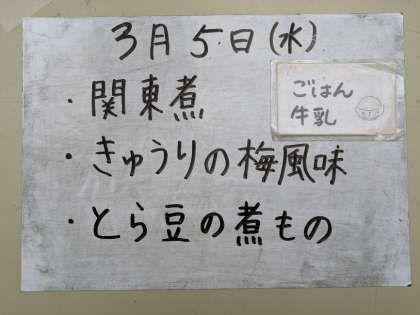 3月5日(水)
ごはん
牛乳
・関東煮
・きゅうりの梅風味
・とら豆の煮もの